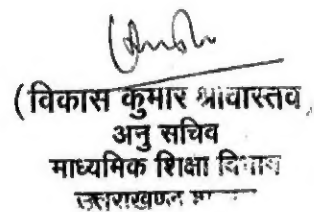 (विकास कुमार श्रीवास्तव
अनु सचिव
माध्यमिक शिक्षा विभाग
उत्तराखण्ड